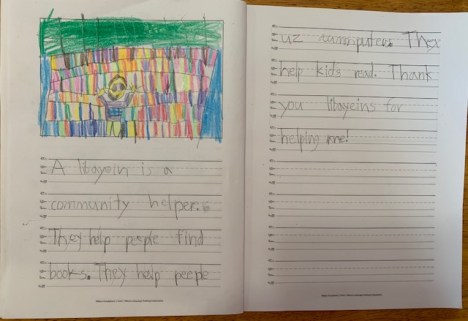 A lbayein is a
community helper.
They help people find
books. They help peeple
uz computers. They
help kids read. Thank
you lbayeins for
helping me!